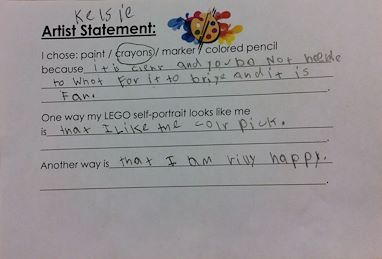 Kelsie
Artist Statement:
I chose: paint / crayons / marker / colored pencil
because it is clenr and you bo Not neede
to Whot For it to briye and it is
Fan.
One way my LEGO self-portrait looks like me
is that I Like the colr pick.
Another way is that I am rilly happy.